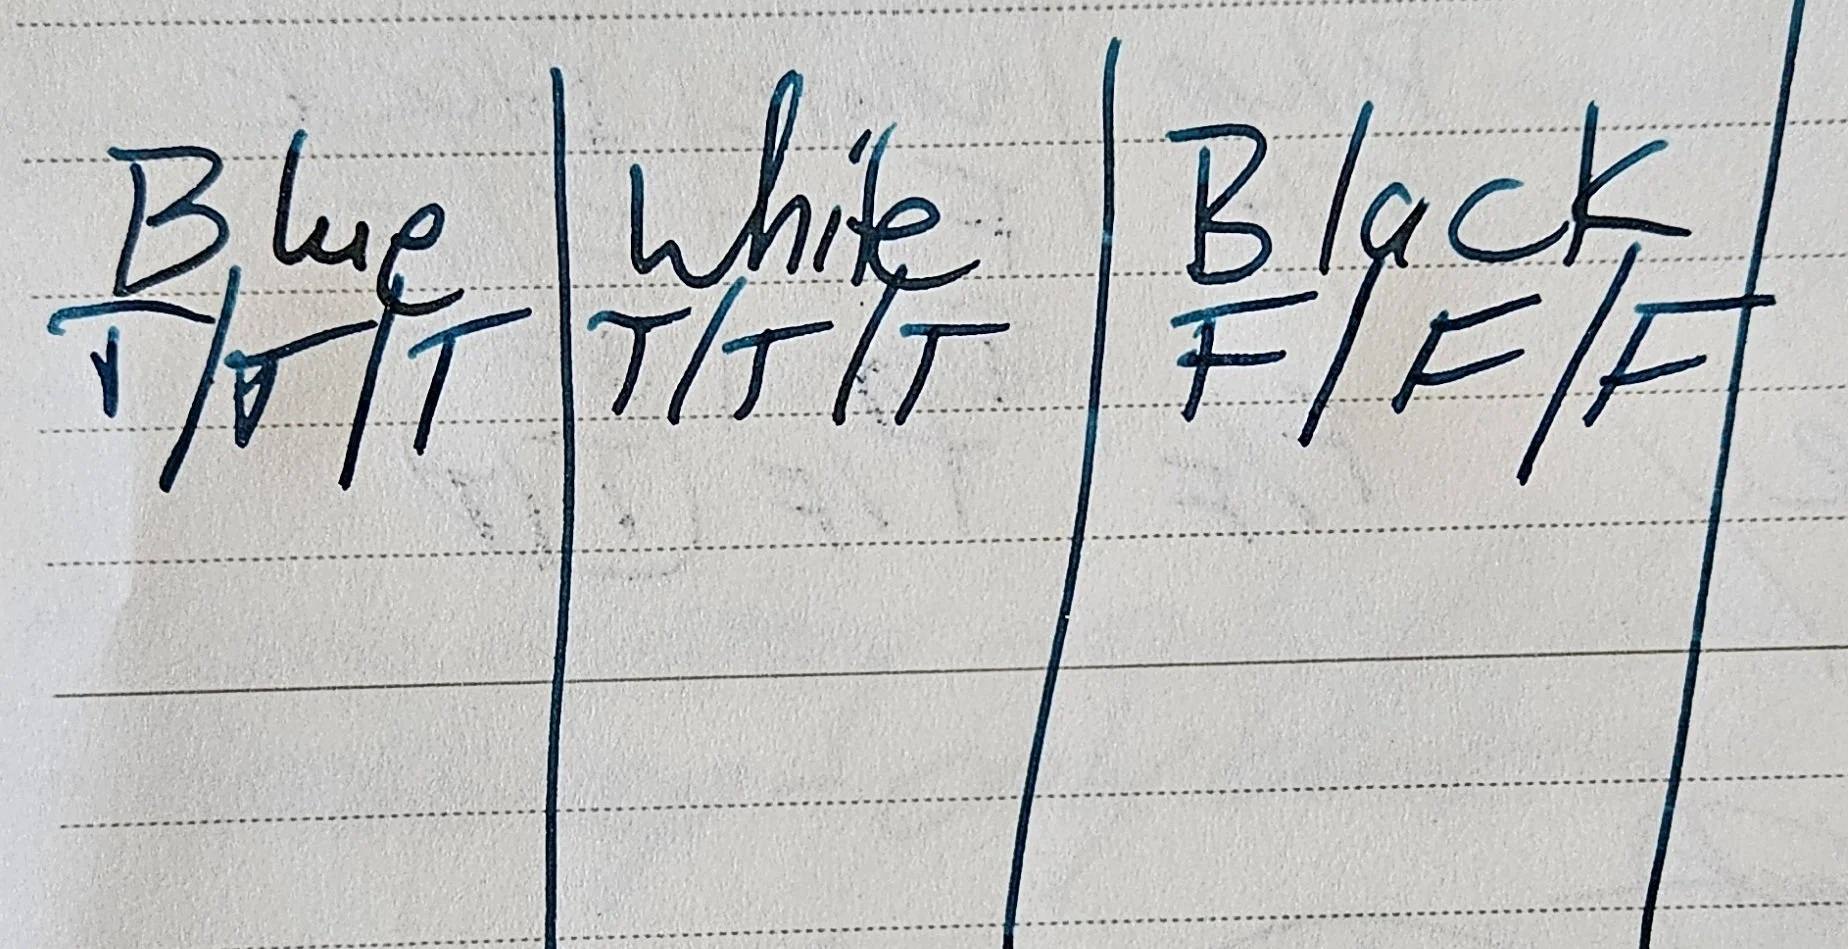 Blue | White | Black
T/T/T | T/T/T | F/F/F